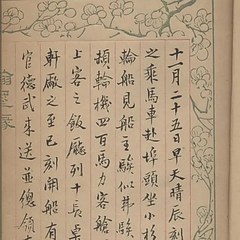 十一月二十五日早天晴辰刻
之乘馬車赴埠頭坐小杉
輪船見船主駿似井駿
頡輪機四百馬力客艙
上客之飯廳列十長桌
軒廠之至已刻開船有
官德武來送並總領